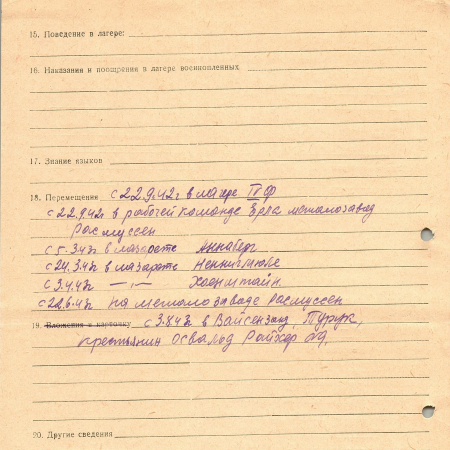 15. Поведение в лагере:
16. Наказания и поощрения в лагере военнопленных
17. Знание языков
18. Перемещение с 22.9.42г в лагере IVФ
с 22.9.42г в рабочей команде Эрла металозавод
Расмуссен
с 5.3.43г в лазарете Аннаберг
с 24.3.43г в лазарете
с 3.4.43г —„— Хоенштайн
с 22.6.43г на металозаводе Расмуссен
19. Вложения в карточку с 3.8.43г в Вайсензанд, Турук,
крестьянин Освальд Райхер
20. Другие сведения